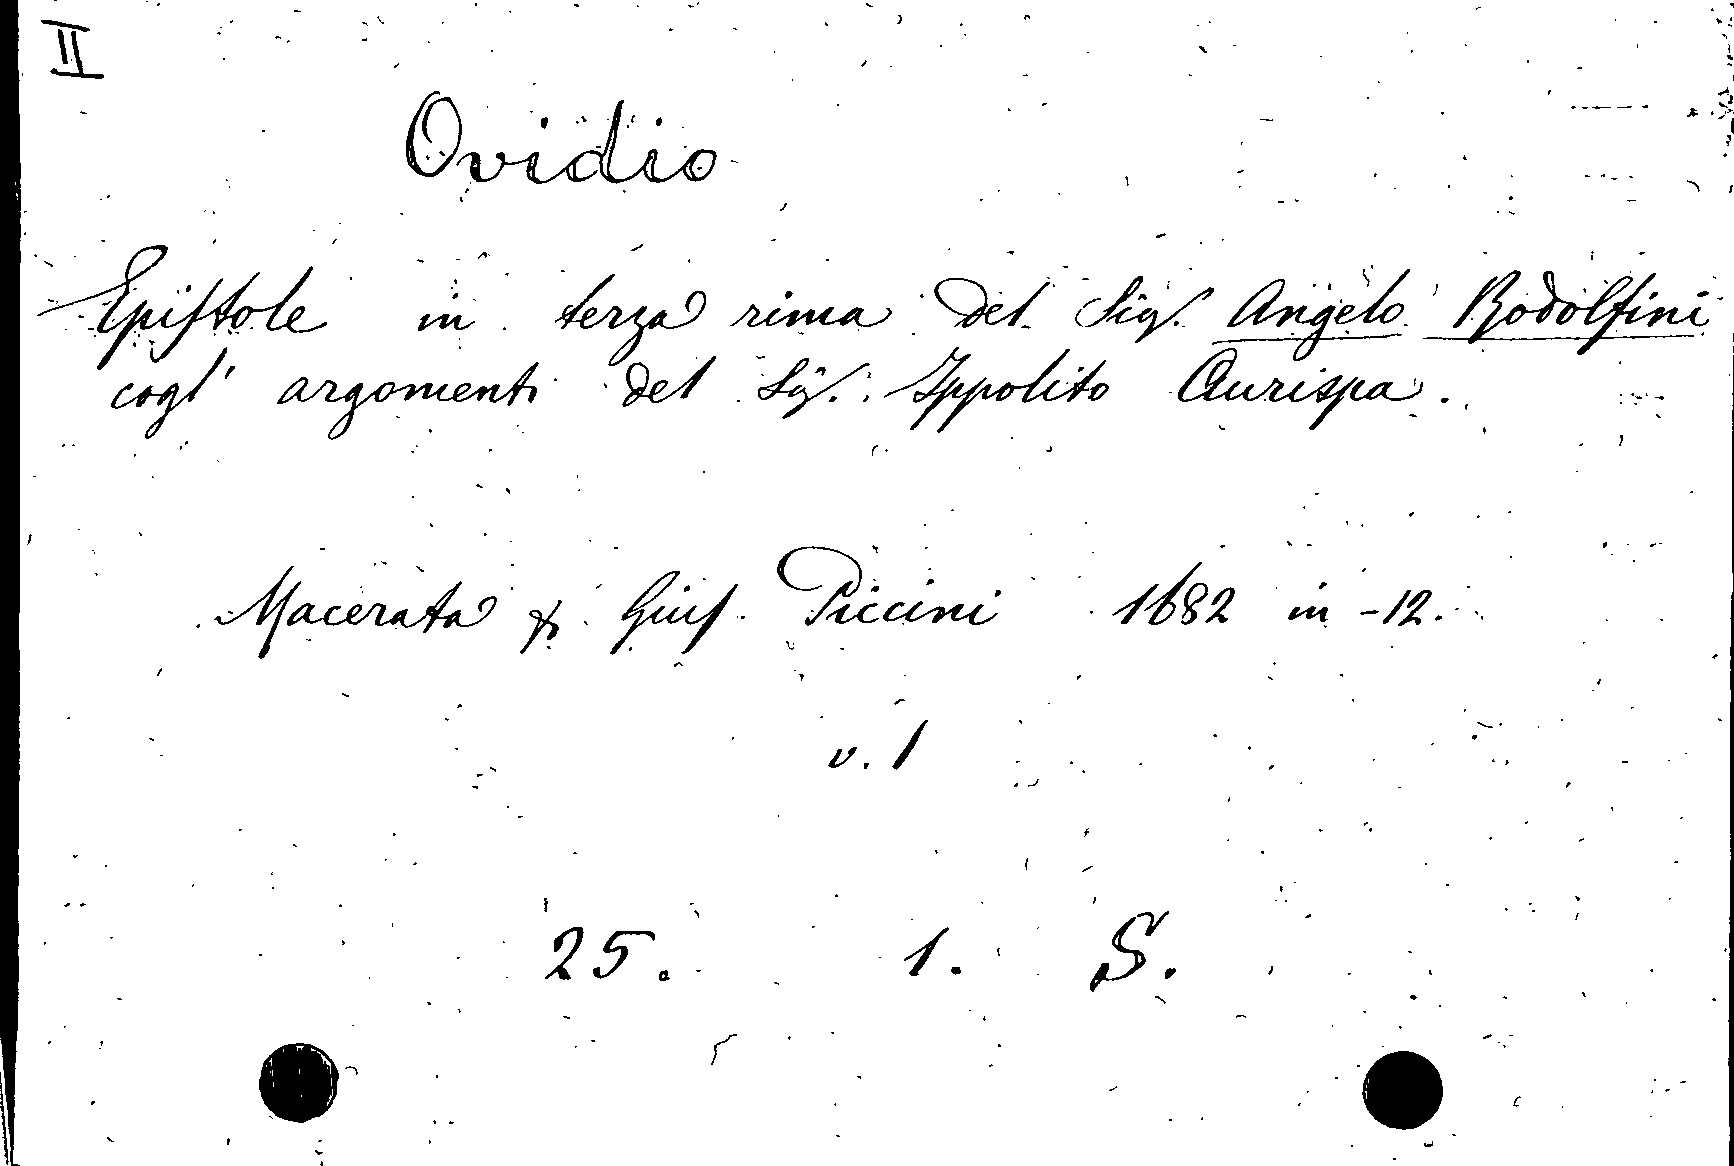 II
Ovidio
Epistole in terza rima del Sig. Angelo Rodolfini
cogl' argomenti del Sig. Ippolito Aurispa.
Macerata Gius. Piccini 1682 in-12.
v. 1
25. 1. S.